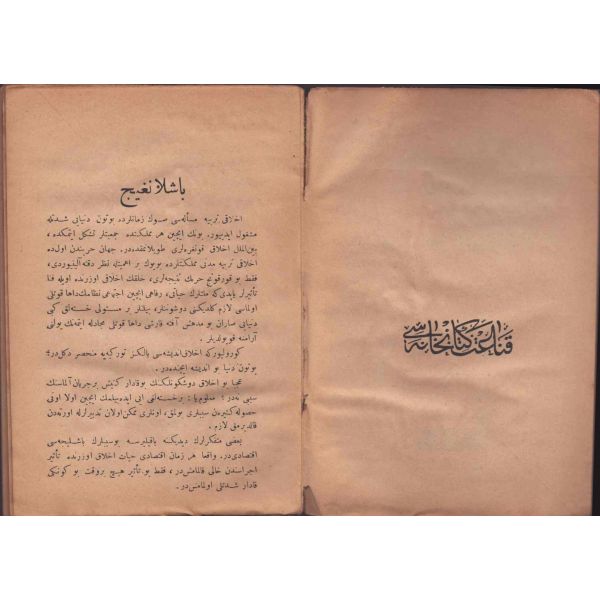 قناعت كتابخانه‌سی
باشلانغیج
اخلاقی تربیه مسأله‌سی صوك زمانلرده بوتون دنیایی شدتله
مشغول ایدییور. بونك ایچین هر مملكتده جمعیتلر تشكل ایتمكده،
بین‌الملل اخلاق قونغره‌لری طوپلانمقده‌در. جهان حربندن اول ده
اخلاقی تربیه مدنی مملكتلرده بویوك بر اهمیتله نظر دقته آلینیوردی،
فقط بو قورقونج حربك نتیجه‌لری، خلقك اخلاقی اوزرنده اویله فنا
تأثیرلر یاپدی‌كه ملتلرك حیاتی، رفاهی ایچین اجتماعی نظامك داها قوتلی
اولماسی لازم كلدیكنی دوشونلر، بیلنلر بر مستولی خسته‌لق كبی
دنیایی صاران بو مدهش آفته قارشی داها قوتلی مجادله ایتمه‌نك یولنی
آرامنه قویولدیلر.
كورولیوركه اخلاق اندیشه‌سی یالكز توركیه‌یه منحصر دكل‌در؛
بوتون دنیا بو اندیشه ایچنده‌در.
عجبا بو اخلاق دوشكونلكنك بوقادار كنیش بر جریان آلماسنك
سببی نه‌در؟ معلوم‌یا: بر خسته‌لغی ایی ایده‌بیلمك ایچین اولا اونی
حصوله كتیره‌ن سببلری بولمق، اونلری ممكن اولان تدبیرلرله اورته‌دن
قالدیرمق لازم.
بعضی متفكرلرك دیدیكنه باقیلیرسه بو سببلرك باشلیجه‌سی
اقتصادی‌در. واقعا هر زمان اقتصادی حیات اخلاق اوزرنده تأثیر
اجراسندن خالی قالمامش‌در، فقط بو تأثیر هیچ بروقت بو كونكی
قادار شدتلی اولمامش‌در.